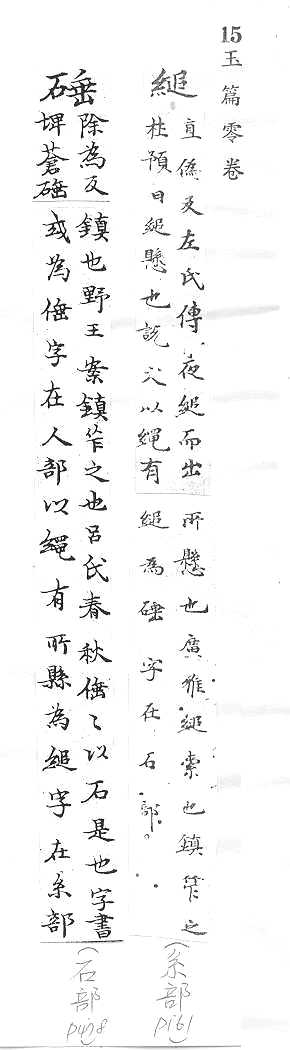 15玉篇零卷
縋 直偽反左氏傳夜縋而出所懸也廣雅縋索也鎮笮之
杜預曰縋懸也說文以繩有縋為硾字在石部。
(糸部 P161)
硾 除為反鎮也野王案鎮笮之也呂氏春秋倕〻以石是也字書
埤蒼硾或為倕字在人部以繩有所縣為縋字在糸部
(石部 P478)